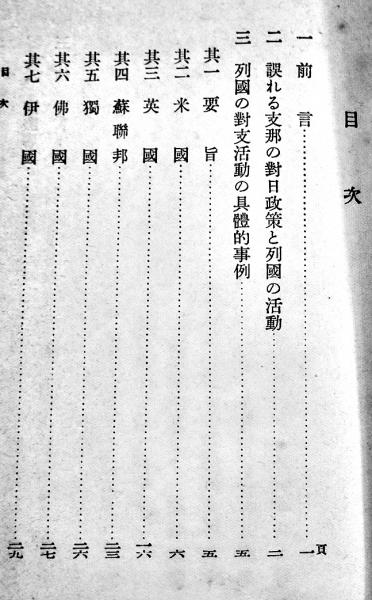 目次
頁
一 前言……一
二 誤れる支那の對日政策と列國の活動……二
三 列國の對支活動の具體的事例……五
其一 要旨……五
其二 米國……六
其三 英國……一六
其四 蘇聯邦……二三
其五 獨國……二六
其六 佛國……二七
其七 伊國……二九
目次